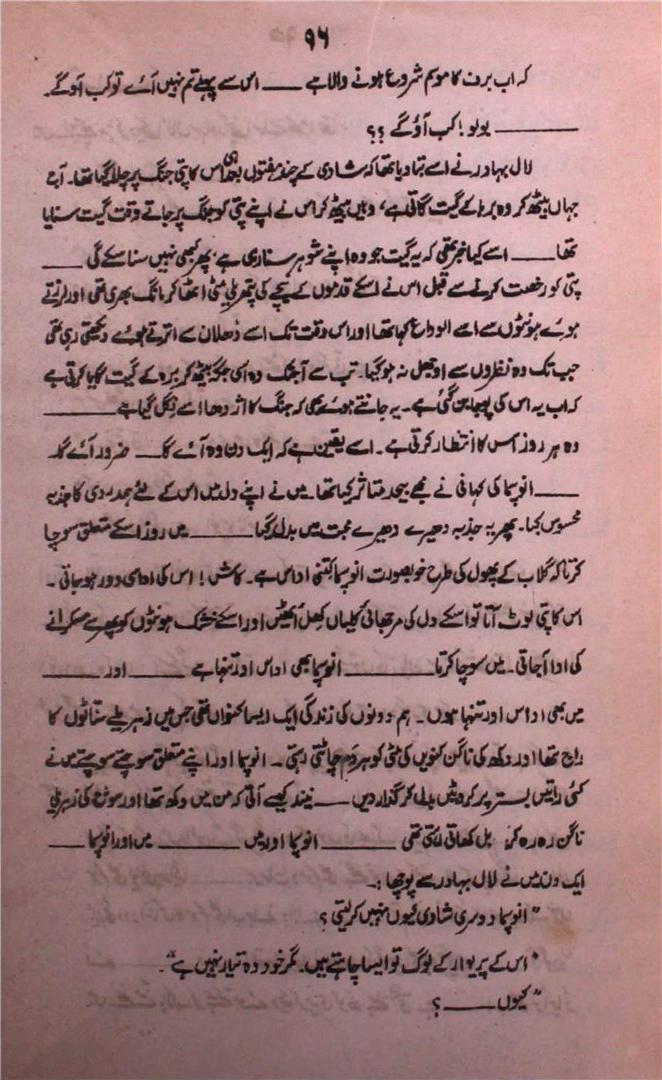 ۹۶
کہ اب برف کا موسم شروع ہونے والا ہے ــــــ اس سے پہلے تم نہیں آئے تو کب آؤگے۔
ــــــــــــ بولو! کب آؤگے ؟؟
لال بہادر نے اسے بتا دیا تھا کہ شادی کے چند ہفتوں بعد ہی اس کا پتی جنگ پر چلا گیا تھا۔ آج
جہاں بیٹھ کر وہ برہا کے گیت گاتی ہے، وہیں بیٹھ کر اس نے اپنے پتی کو جنگ پر جاتے وقت گیت سنایا
تھا ــــــ اسے کیا خبر تھی کہ یہ گیت جو وہ اپنے شوہر سنا رہی ہے، پھر کبھی نہیں سنا سکے گی ــــــ
پتی کو رخصت کرنے سے قبل اس نے اسکے قدموں کے نیچے کی پتھریلی مٹی اٹھا کر مانگ بھری تھی اور لرزتے
ہوئے ہونٹوں سے اسے الوداع کہا تھا اور اس وقت تک اسے ڈھلان سے اترتے ہوئے دیکھتی رہی تھی
جب تک وہ نظروں سے اوجھل نہ ہو گیا۔ تب سے آجتک وہ اسی جگہ بیٹھ کر برہ کے گیت گایا کرتی ہے
کہ اب یہ اس کی پہچان بن گئی ہے۔ یہ جانتے ہوئے بھی کہ جنگ کا اژدھا اسے نگل گیا ہے ــــــــــ
وہ ہر روز اس کا انتظار کرتی ہے۔ اسے یقین ہے کہ ایک دن وہ آئے گا ــــ ضرور آئے گا۔
ــــــ انوپما کی کہانی نے مجھے بیحد متاثر کیا تھا۔ میں نے اپنے دل میں اس کے لئے ہمدردی کا جذبہ
محسوس کیا۔ پھر یہ جذبہ دھیرے دھیرے محبت میں بدل گیا ــــــــ میں روز اسکے متعلق سوچا
کرتا کہ گلاب کے پھول کی طرح خوبصورت انوپما کتنی اداس ہے۔ کاش! اس کی اداسی دور ہو جاتی۔
اس کا پتی لوٹ آتا تو اسکے دل کی مرجھائی کلیاں کھل اٹھتیں اور اسکے خشک ہونٹوں کو پھر سے مسکرانے
کی ادا آجاتی۔ میں سوچا کرتا ــــــــــــ انوپما بھی اداس اور تنہا ہے ــــــــ اور ــــــــــ
میں بھی اداس اور تنہا ہوں۔ ہم دونوں کی زندگی ایک ایسا کنواں تھی جس میں زہریلے سناٹوں کا
راج تھا اور دکھ کی ناگن کنویں کی مٹی کو ہر دم چاٹتی رہتی۔ انوپما اور اپنے متعلق سوچتے سوچتے میں نے
کئی راتیں بستر پر کروٹیں بدل کر گذار دیں ــــــ نیند کیسے آتی کہ من میں دکھ تھا اور سوچ کی زہریلی
ناگن رہ رہ کر بل کھاتی تھی ــــــــــ انوپما اور میں ــــــــــــ میں اور انوپما ــــــــ
ایک دن میں نے لال بہادر سے پوچھا :۔
"انوپما دوسری شادی کیوں نہیں کر لیتی ؟
"اس کے پریوار کے لوگ تو ایسا چاہتے ہیں۔ مگر خود وہ تیار نہیں ہے"۔
"کیوں ــــــــ ؟